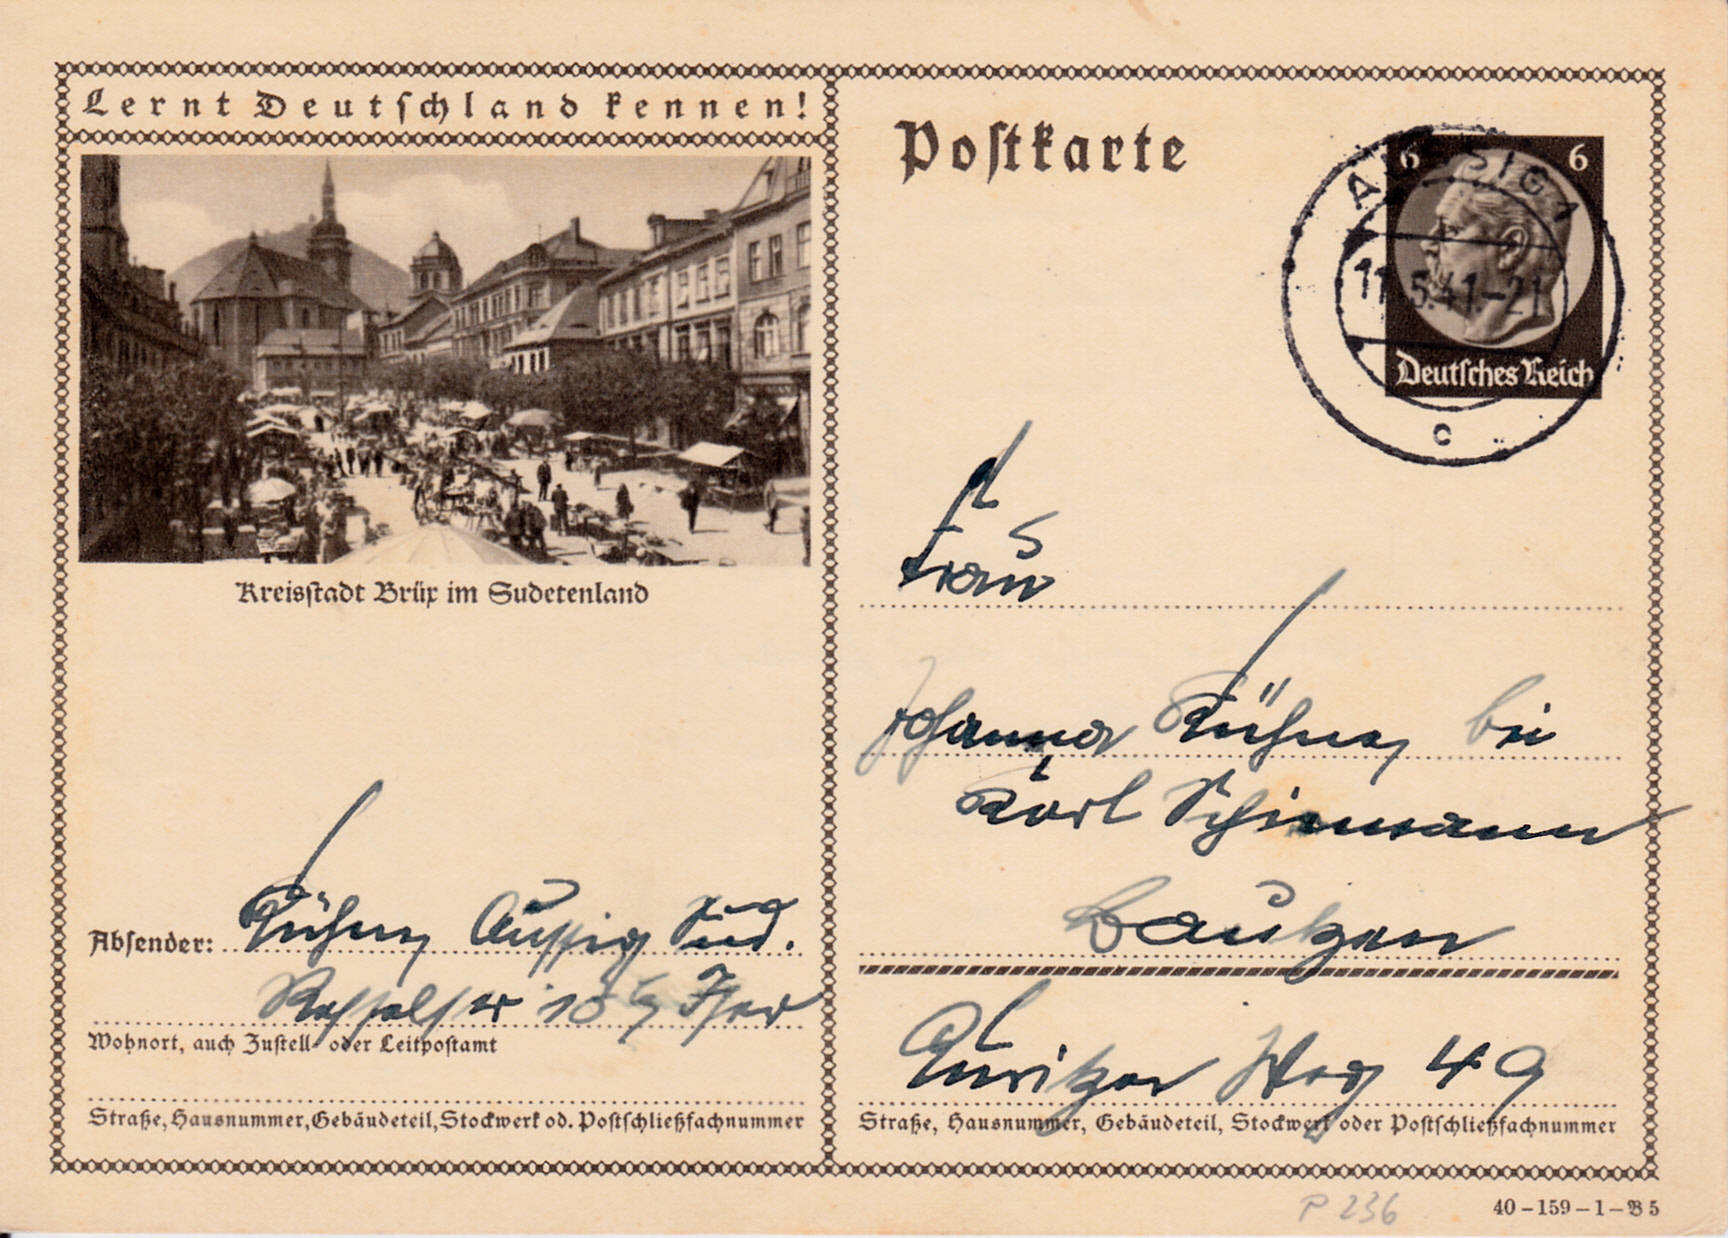 Lernt Deutschland kennen!
Kreisstadt Brüx im Sudetenland
Absender: Kühne, Aussig Sud.
Wohnort, auch Zustell- oder Leitpostamt
Straße, Hausnummer, Gebäudeteil, Stockwerk od. Postschließfachnummer
Postkarte
6 6
AUSSIG 1
11.5.41.-21
c
Deutsches Reich
Frau
Johanna Kühne, bei
Karl Schiemann
Bautzen
Weg 49
Straße, Hausnummer, Gebäudeteil, Stockwerk oder Postschließfachnummer
P 236
40-159-1-B5